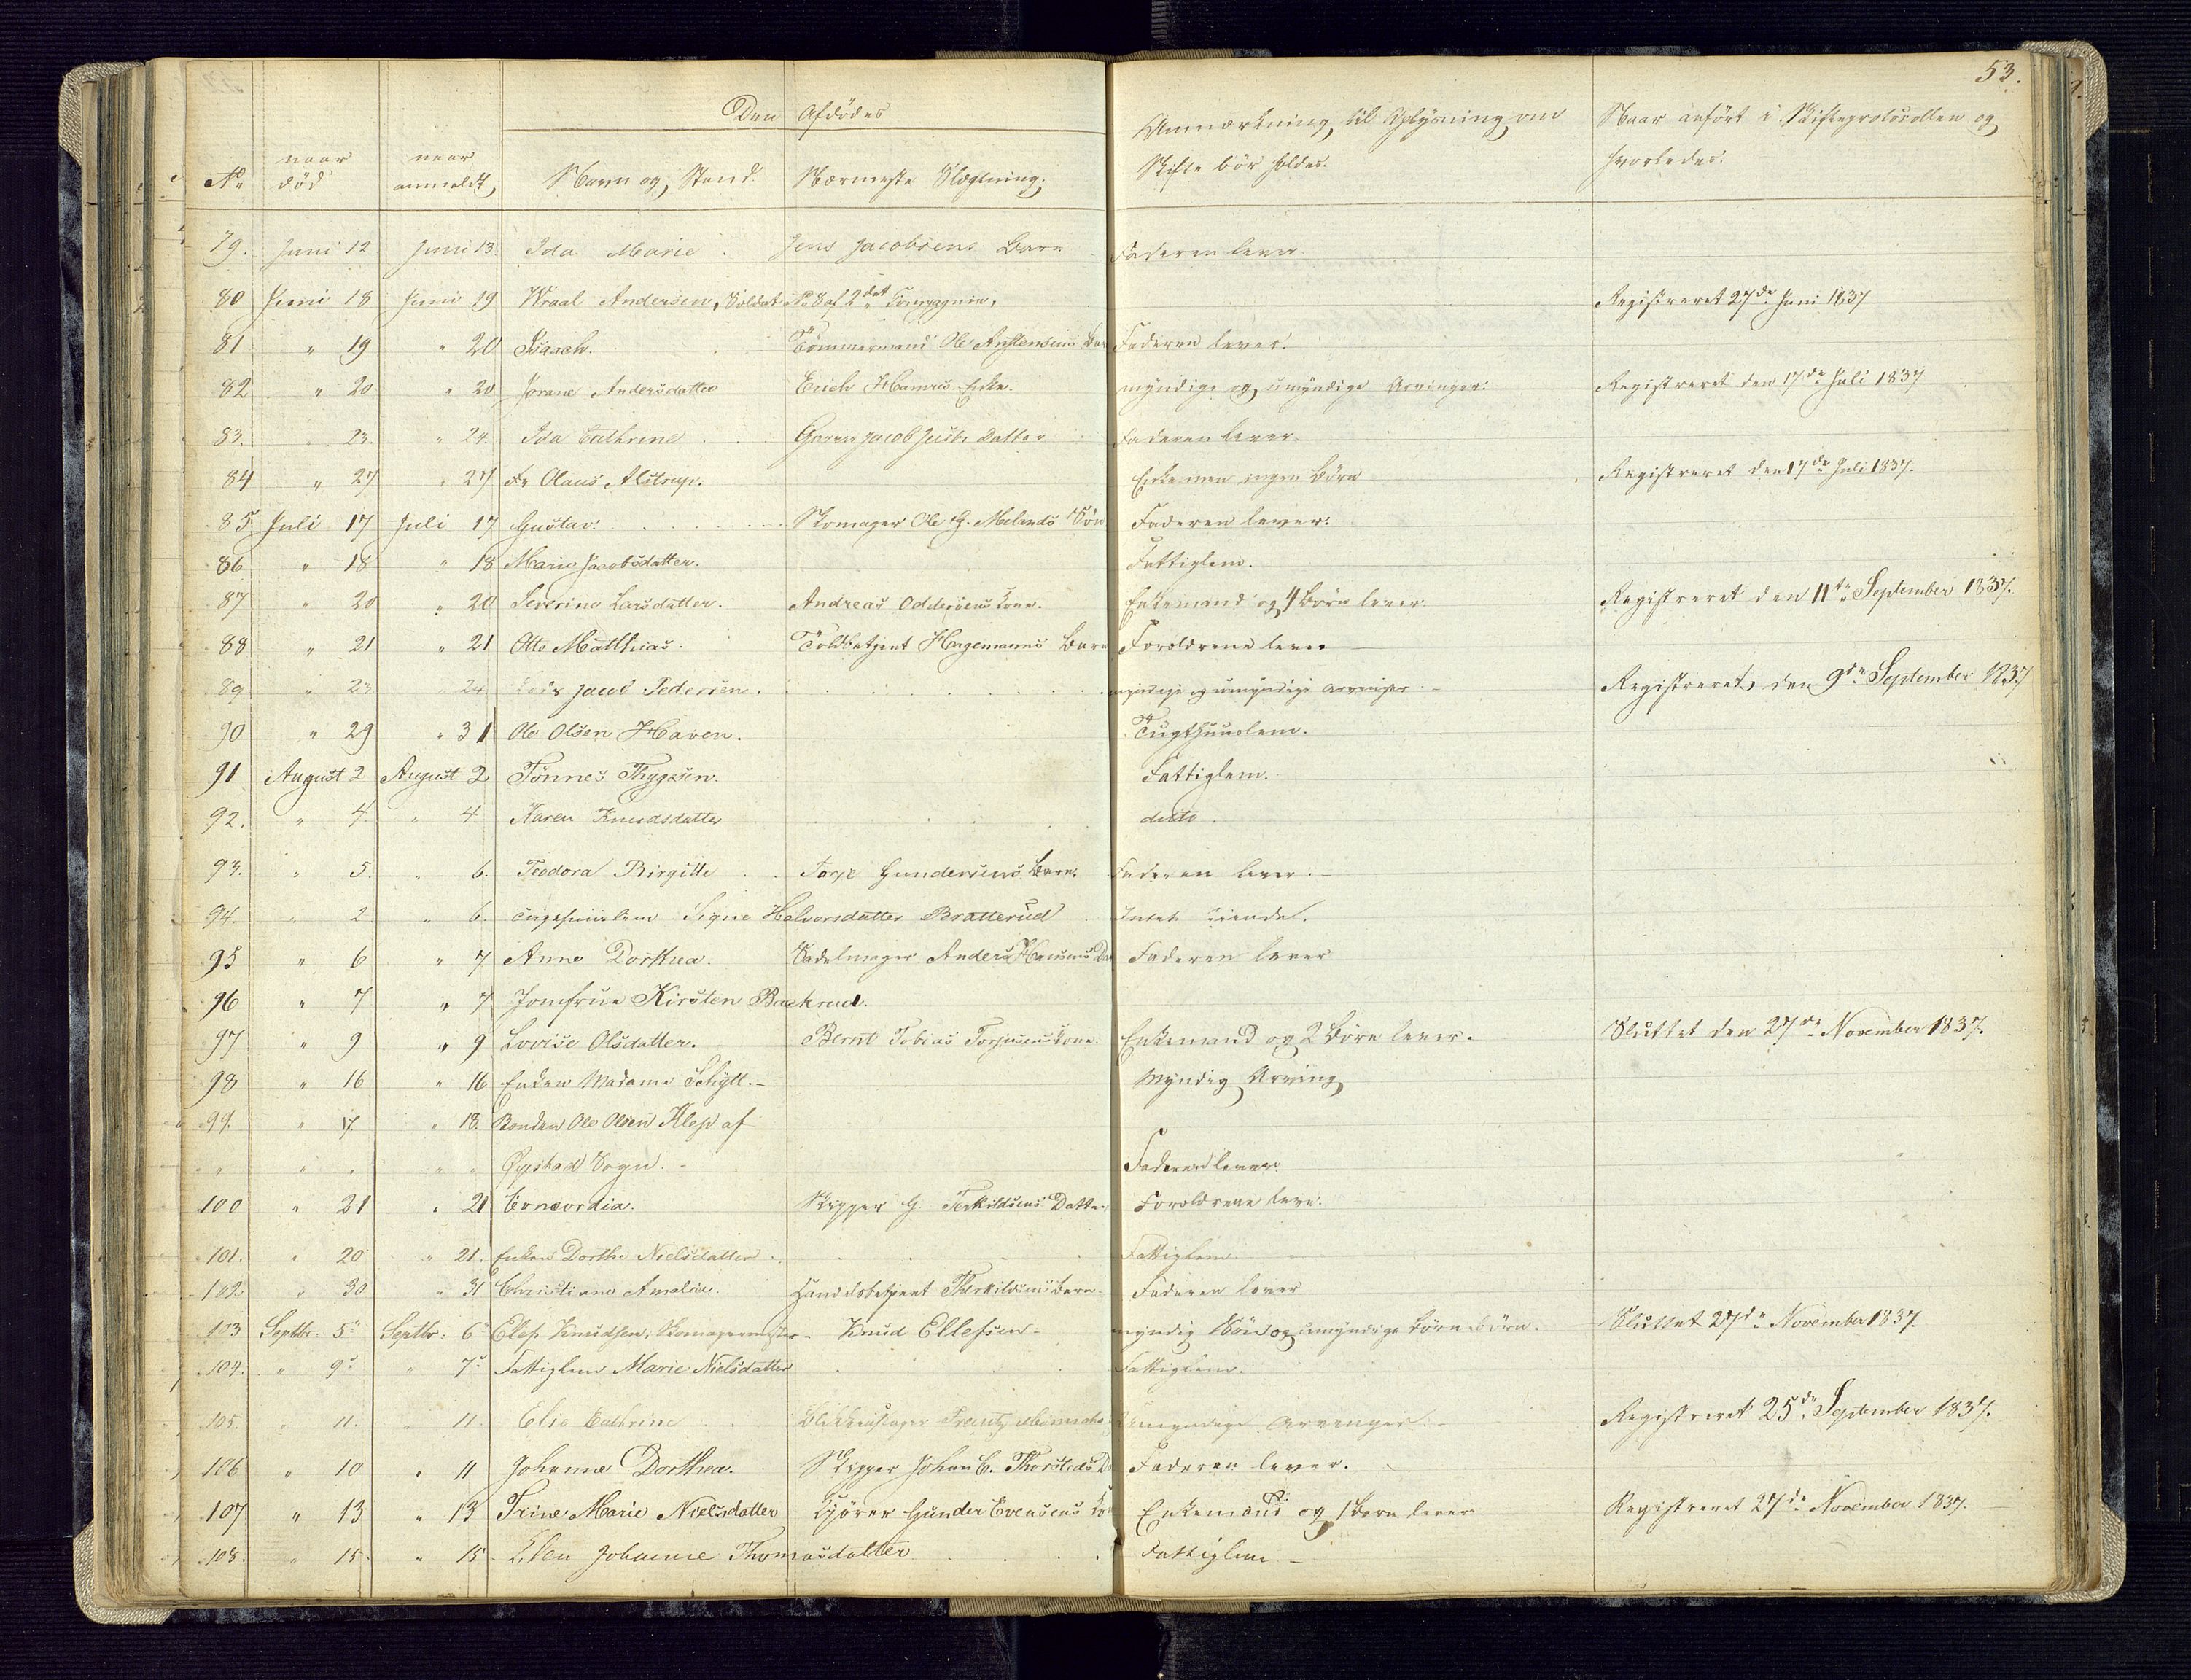 53.
Den Afdödes
Anmærkning til Oplysning om Skifte bör holdes.
Naar anfört i Skifteprotocollen og hvorledes.
No naar död naar anmeldt Navn og Stand. Nærmeste Slægtning.
79. Juni 12 Juni 13 Ida Marie Jens Jacobsens Barn Faderen lever.
80 Juni 18 Juni 19 Andersen, Soldat No 8 af 2det Compagnie, Registreret 27de Juni 1837
81 " 19 " 20 Isaach. Tömmermand Ole Faderen lever.
82 " 20 " 20 Jorane Andersdatter Erich Enke. myndige og umyndige Arvinger. Registreret den 17de Juli 1837
83. " 23 " 24 Ida Cathrine Jacob Datter Faderen lever.
84 " 27 " 27 Olaus Alstrup. Enke men ingen Börn Registreret den 17de Juli 1837.
85 Juli 17 Juli 17 Gustav. Skomager Ole G. Melands Sön Faderen lever.
86 " 18 " 18 Marie Jacobsdatter. Fattiglem.
87 " 20 " 20 Severine Larsdatter. Andreas Oddersens Kone. Enkemand og 4 Börn lever. Registreret den 11te September 1837.
88 " 21 " 21 Otto Matthias. Toldbetjent Hagemanns Barn Foroldrene lever
89 " 23 " 24 Jacob Pedersen. myndige og umyndige Arvinger - Registreret den 9de September 1837
90 " 29 " 31 Ole Olsen Haven. Tugthuuslem.
91 August 2 August 2 Tönnes Thygesen. Fattiglem.
92. " 4. " 4 Karen Knudsdatter ditto.
93. " 5. " 6. Teodora Birgitte Torje Gundersens Barn. Faderen lever. -
94. " 2 " 6. Signe Halvorsdatter Bratterud Intet Eiende.
95 " 6 " 7 Anne Dorthea. Sadelmager Anders Hansens Faderen lever
96 " 7 " 7 Jomfrue Kirsten Backrud.
97 " 9 " 9 Lovise Olsdatter. Bernt Tobias Torjusens Kone. Enkemand og 2 Börn lever. Sluttet den 27de November 1837.
98 " 16 " 16 Enken Madame Schytt. - Myndig Arving
99. " 17. " 18. Bonden Ole Olsen Klep af
" " " " " Sogn. - Faderen lever.
100 " 21 " 21 Concordia. Skipper G. Terkildsens Datter Foroldrene leve.
101. " 20 " 21. Enken Dorthe Nielsdatter. Fattiglem
102 " 30 " 31 Christiane Amalie. Therkildsens Barn. Faderen lever
103 Septbr. 5 Septbr. 6 Elef Knudsen, Skomagermester - Knud Ellefsen - myndig Sön og umyndige Börne Börn. Sluttet 27de November 1837.
104. " 9 " 7 Fattiglem Marie Nielsdatter Fattiglem.
105. " 11. " 11. Elie Cathrine Blikkenslager Frantz Umyndige Arvinger. - Registreret 25de September 1837.
106 " 10 " 11 Johanne Dorthea. Skipper Johan C. Thorsteds Faderen lever.
107 " 13 " 13 Trine Marie Nielsdatter Kjörer Gunder Evensens Enkemand og 1 Barn lever Registreret 27de November 1837.
108. " 15. " 15. Ellen Johanne Thomasdatter Fattiglem -